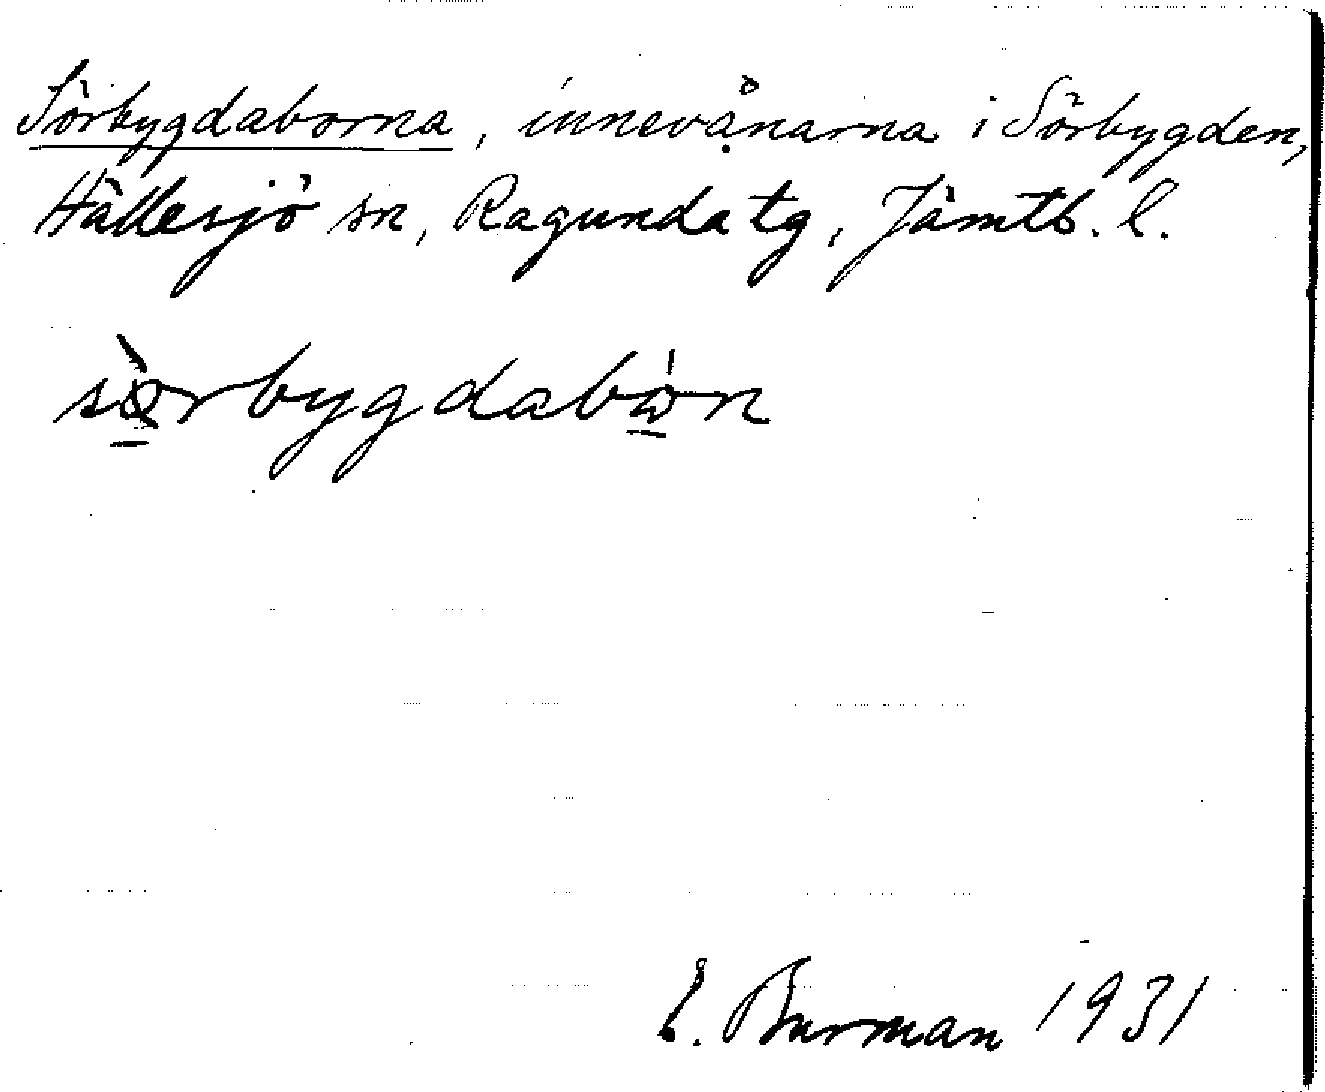 Sörbygdaborna, innevånarna i Sörbygden,
Hällesjö sn, Ragunda tg, Jämtl. l.
sö̀rbygdabón
E. Burman 1931